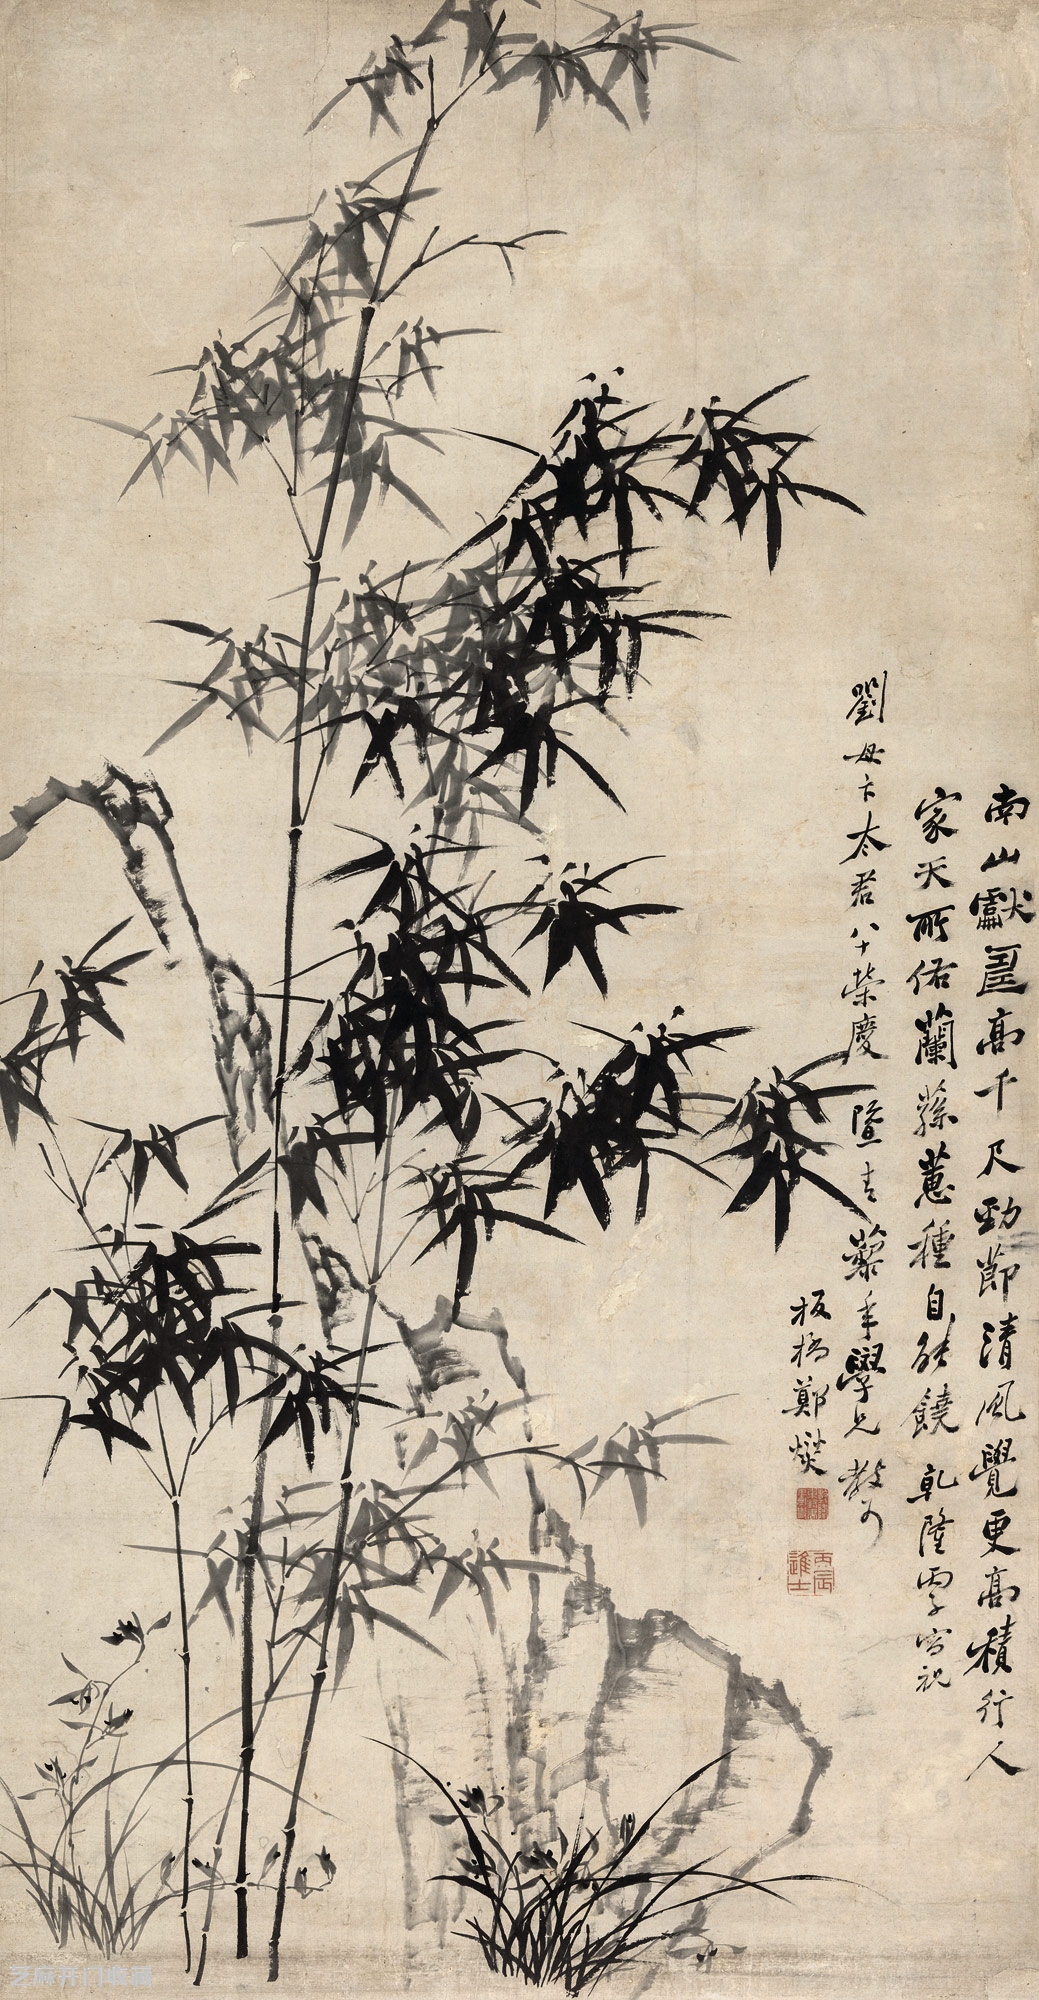 南山獻壽高千尺勁節清風覺更高積行人
家天所佑蘭蓀蕙種自能饒 乾隆丙子寫祝
劉母卞太君八十榮慶 暨青藜年學兄教可
板橋鄭燮
丙辰進士
芝麻开门收藏